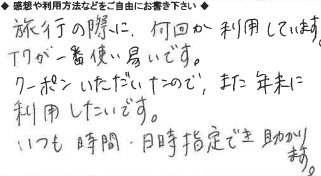 ◆ 感想や利用方法などをご自由にお書き下さい ◆
旅行の際に、何回か利用しています。
が一番使い易いです。
クーポンいただいたので、また年末に
利用したいです。
いつも時間・日時指定でき助かります。